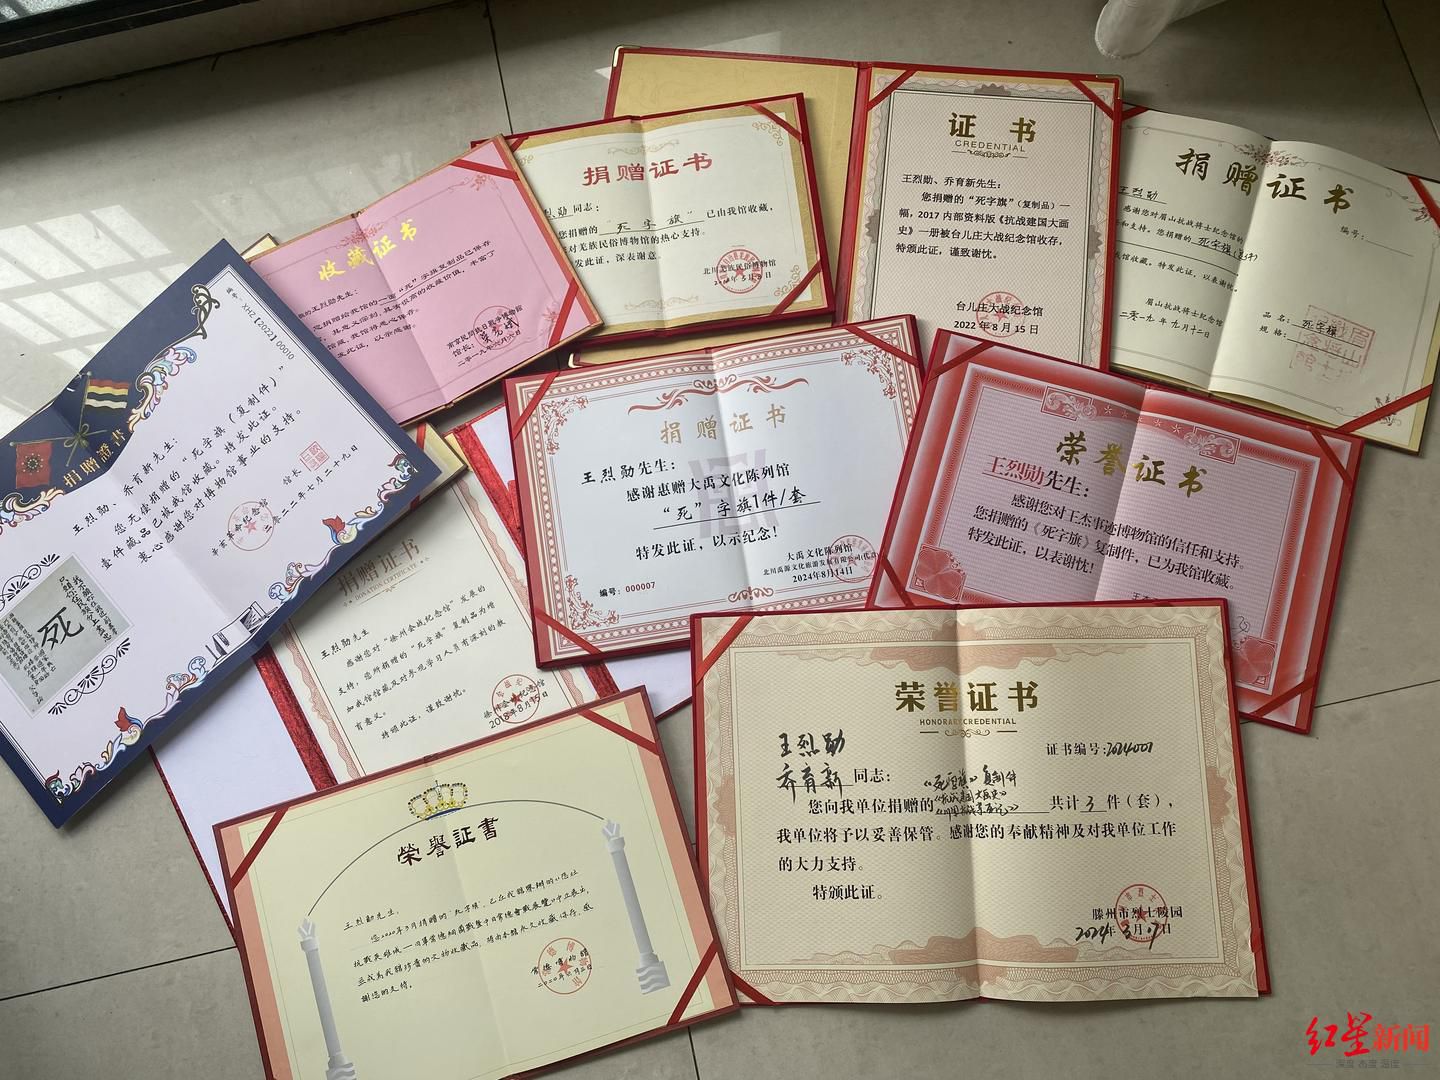 证 书
CREDENTIAL
王烈勋、乔育新先生：
您捐赠的“死字旗”（复制品）一
幅，2017内部资料版《抗战建国大画
史》一册被台儿庄大战纪念馆收存，
特颁此证，谨致谢忱。
台儿庄大战纪念馆
2022年8月15日
捐赠证书
王烈勋
编号：
感谢您对眉山抗战将士纪念馆的
和支持。您捐赠的 死字旗
我馆收藏。特发此证，以表谢忱。
眉山抗战将士纪念馆
二零一九年九月十二日
品名：死字旗
规格：
捐赠证书
烈勋 同志：
您捐赠的“死字旗”已由我馆收藏，
对羌族民俗博物馆的热心支持。
发此证，深表谢意。
北川羌族民俗博物馆
收藏证书
的王烈勋先生：
您捐赠给我馆的一面“死”字旗复制品已保存
其意义深刻，具有很高的收藏价值，丰富了
馆藏，我馆将悉心保存。
发此证，以示感谢。
南京民间抗日战争博物馆
馆长：
二零一九年六月六日
编号：XHZ【2022】00010
捐贈證書
王烈勋、乔育新先生：
您无偿捐赠的“死字旗（复制件）”
壹件藏品已被我馆收藏。特发此证。
衷心感谢您对博物馆事业的支持。
辛亥革命纪念馆 馆长
二〇二二年七月二十九日
死
捐赠证书
DONATION CERTIFICATE
王烈勋先生
感谢您对“徐州会战纪念馆”发展的
支持，您所捐赠的“死字旗”复制品为增
加我馆馆藏及对参观学习人员有深刻的教
育意义。
特颁此证，谨致谢忱。
徐州会战纪念馆
2018年8月15日
捐赠证书
王烈勋先生：
感谢惠赠大禹文化陈列馆
“死”字旗1件/套
特发此证，以示纪念！
大禹文化陈列馆
北川禹源文化旅游发展有限公司(代章)
2024年8月14日
编号：000007
荣誉证书
王烈勋先生：
感谢您对王杰事迹博物馆的信任和支持。
您捐赠的《死字旗》复制件，已为我馆收藏。
特发此证，以表谢忱！
荣誉证书
HONORARY CREDENTIAL
证书编号:2024001
王烈勋
乔育新 同志：
《死字旗》复制件
《抗战建国大画史》
您向我单位捐赠的 共计 3 件（套），
我单位将予以妥善保管。感谢您的奉献精神及对我单位工作
的大力支持。
特颁此证。
滕州市烈士陵园
2024年3月7日
榮譽証書
王烈勛先生，
您2020年5月捐贈的“死字旗”，已在我館舉辦的《遠社
抗戰英雄城—
並成為我館珍貴的文物收藏品，將由本館永久收藏保存，感
謝您的支持。
常德博物館
红星新闻
深度 态度 温度